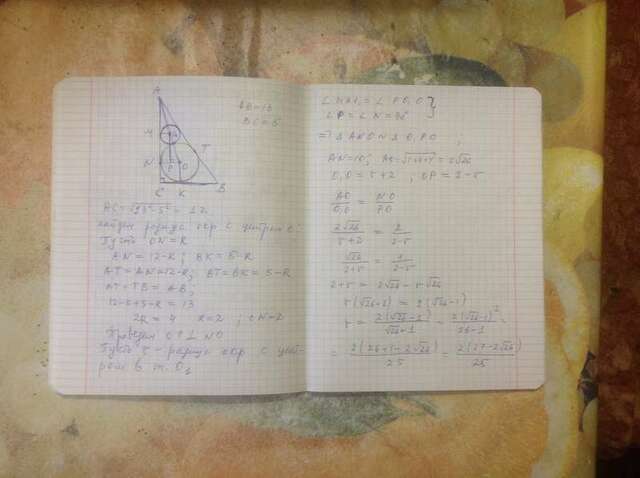 A
M
N
P
O
T
C
K
B
AB=13
BC=5
AC=√13²-5² = 12
Найдём радиус окр с центром O:
Пусть ON=R
AN=12-R; BK=5-R
AT=AN=12-R; BT=BK=5-R
AT+TB=AB;
12-R+5-R=13
2R=4 R=2; ON=2
Проведём OP⊥NO
Пусть r-радиус окр с цент-
ром в т. O₁
= ∠PO₁O }
∠P=∠N=90°
⇒ΔANO~ΔO₁PO ;
AN=10; AO=√100+4=2√26
O₁O=r+2 , OP=2-r
AO/O₁O = NO/PO
2√26/r+2 = 2/2-r
√26/2+r = 1/2-r
2+r = 2√26-r√26
r(√26+1) = 2(√26-1)
r= 2(√26-1)/√26+1 = 2(√26-1)²/26-1 =
= 2(26+1-2√26)/25 = 2(27-2√26)/25